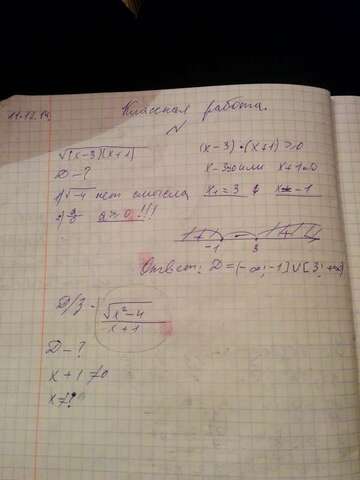 11.12.14
Классная работа.
N
√(x-3)(x+1)
D-?
1) √-4 нет смысла
a ≥ 0!!!
(x-3)·(x+1)≥0
x-3=0 или x+1=0
x₁=3 x=-1
+ - +
-1 3
Ответ: D=(-∞;-1]∪[3;+∞)
D/З - √x²-4 / x+1
D-?
x+1≠0
x≠